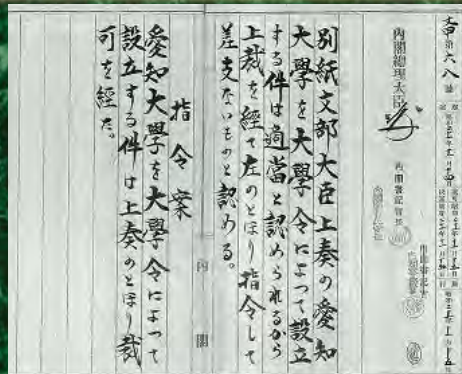 内閣總理大臣
内閣書記官長
別紙文部大臣上奏の愛知
大學を大學令によつて設立
する件は適當と認められるから
上裁を経て左のとほり指令して
差支ないものと認める。
指令案
愛知大學を大學令によつて
設立する件は上奏のとほり裁
可を経た。
内閣